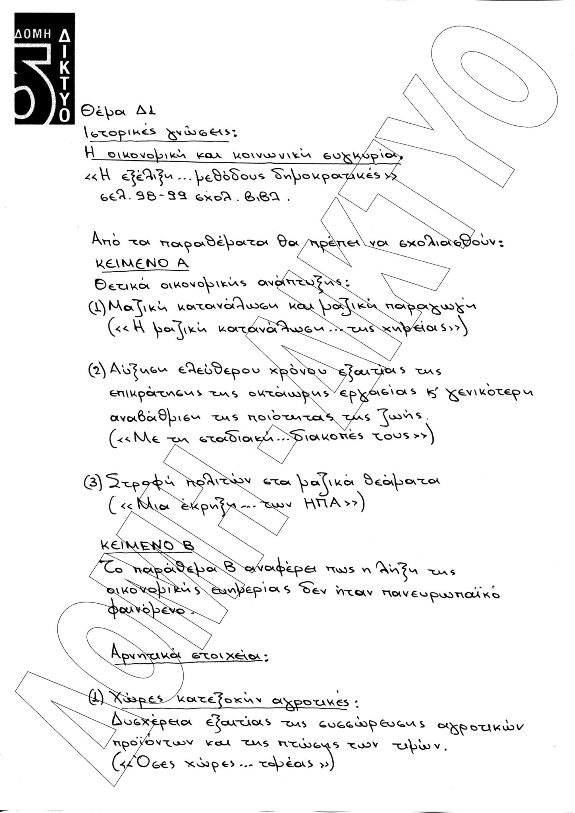 ΔΟΜΗ
ΔΙΚΤΥΟ
Θέμα Δ1
Ιστορικές γνώσεις:
Η οικονομική και κοινωνική συγκυρία,
«Η εξέλιξη...μεθόδους δημοκρατικές»
σελ. 98-99 σχολ. βιβλ.
Από τα παραθέματα θα πρέπει να σχολιασθούν:
ΚΕΙΜΕΝΟ Α
Θετικά οικονομικής ανάπτυξης:
(1) Μαζική κατανάλωση και μαζική παραγωγή
(«Η μαζική κατανάλωση...της χηρείας»)
(2) Αύξηση ελεύθερου χρόνου εξαιτίας της
επικράτησης της οκτάωρης εργασίας κ' γενικότερη
αναβάθμιση της ποιότητας της ζωής.
(«Με τη σταδιακή...διακοπές τους»)
(3) Στροφή πολιτών στα μαζικά θεάματα
(«Μια έκρηξη...των ΗΠΑ»)
ΚΕΙΜΕΝΟ Β
Το παράθεμα Β αναφέρει πως η λήξη της
οικονομικής ευημερίας δεν ήταν πανευρωπαϊκό
φαινόμενο.
Αρνητικά στοιχεία:
(1) Χώρες κατεξοχήν αγροτικές:
Δυσχέρεια εξαιτίας της συσσώρευσης αγροτικών
προϊόντων και της πτώσης των τιμών.
(«Όσες χώρες...τομέας»)
ΔΟΜΗ - ΔΙΚΤΥΟ